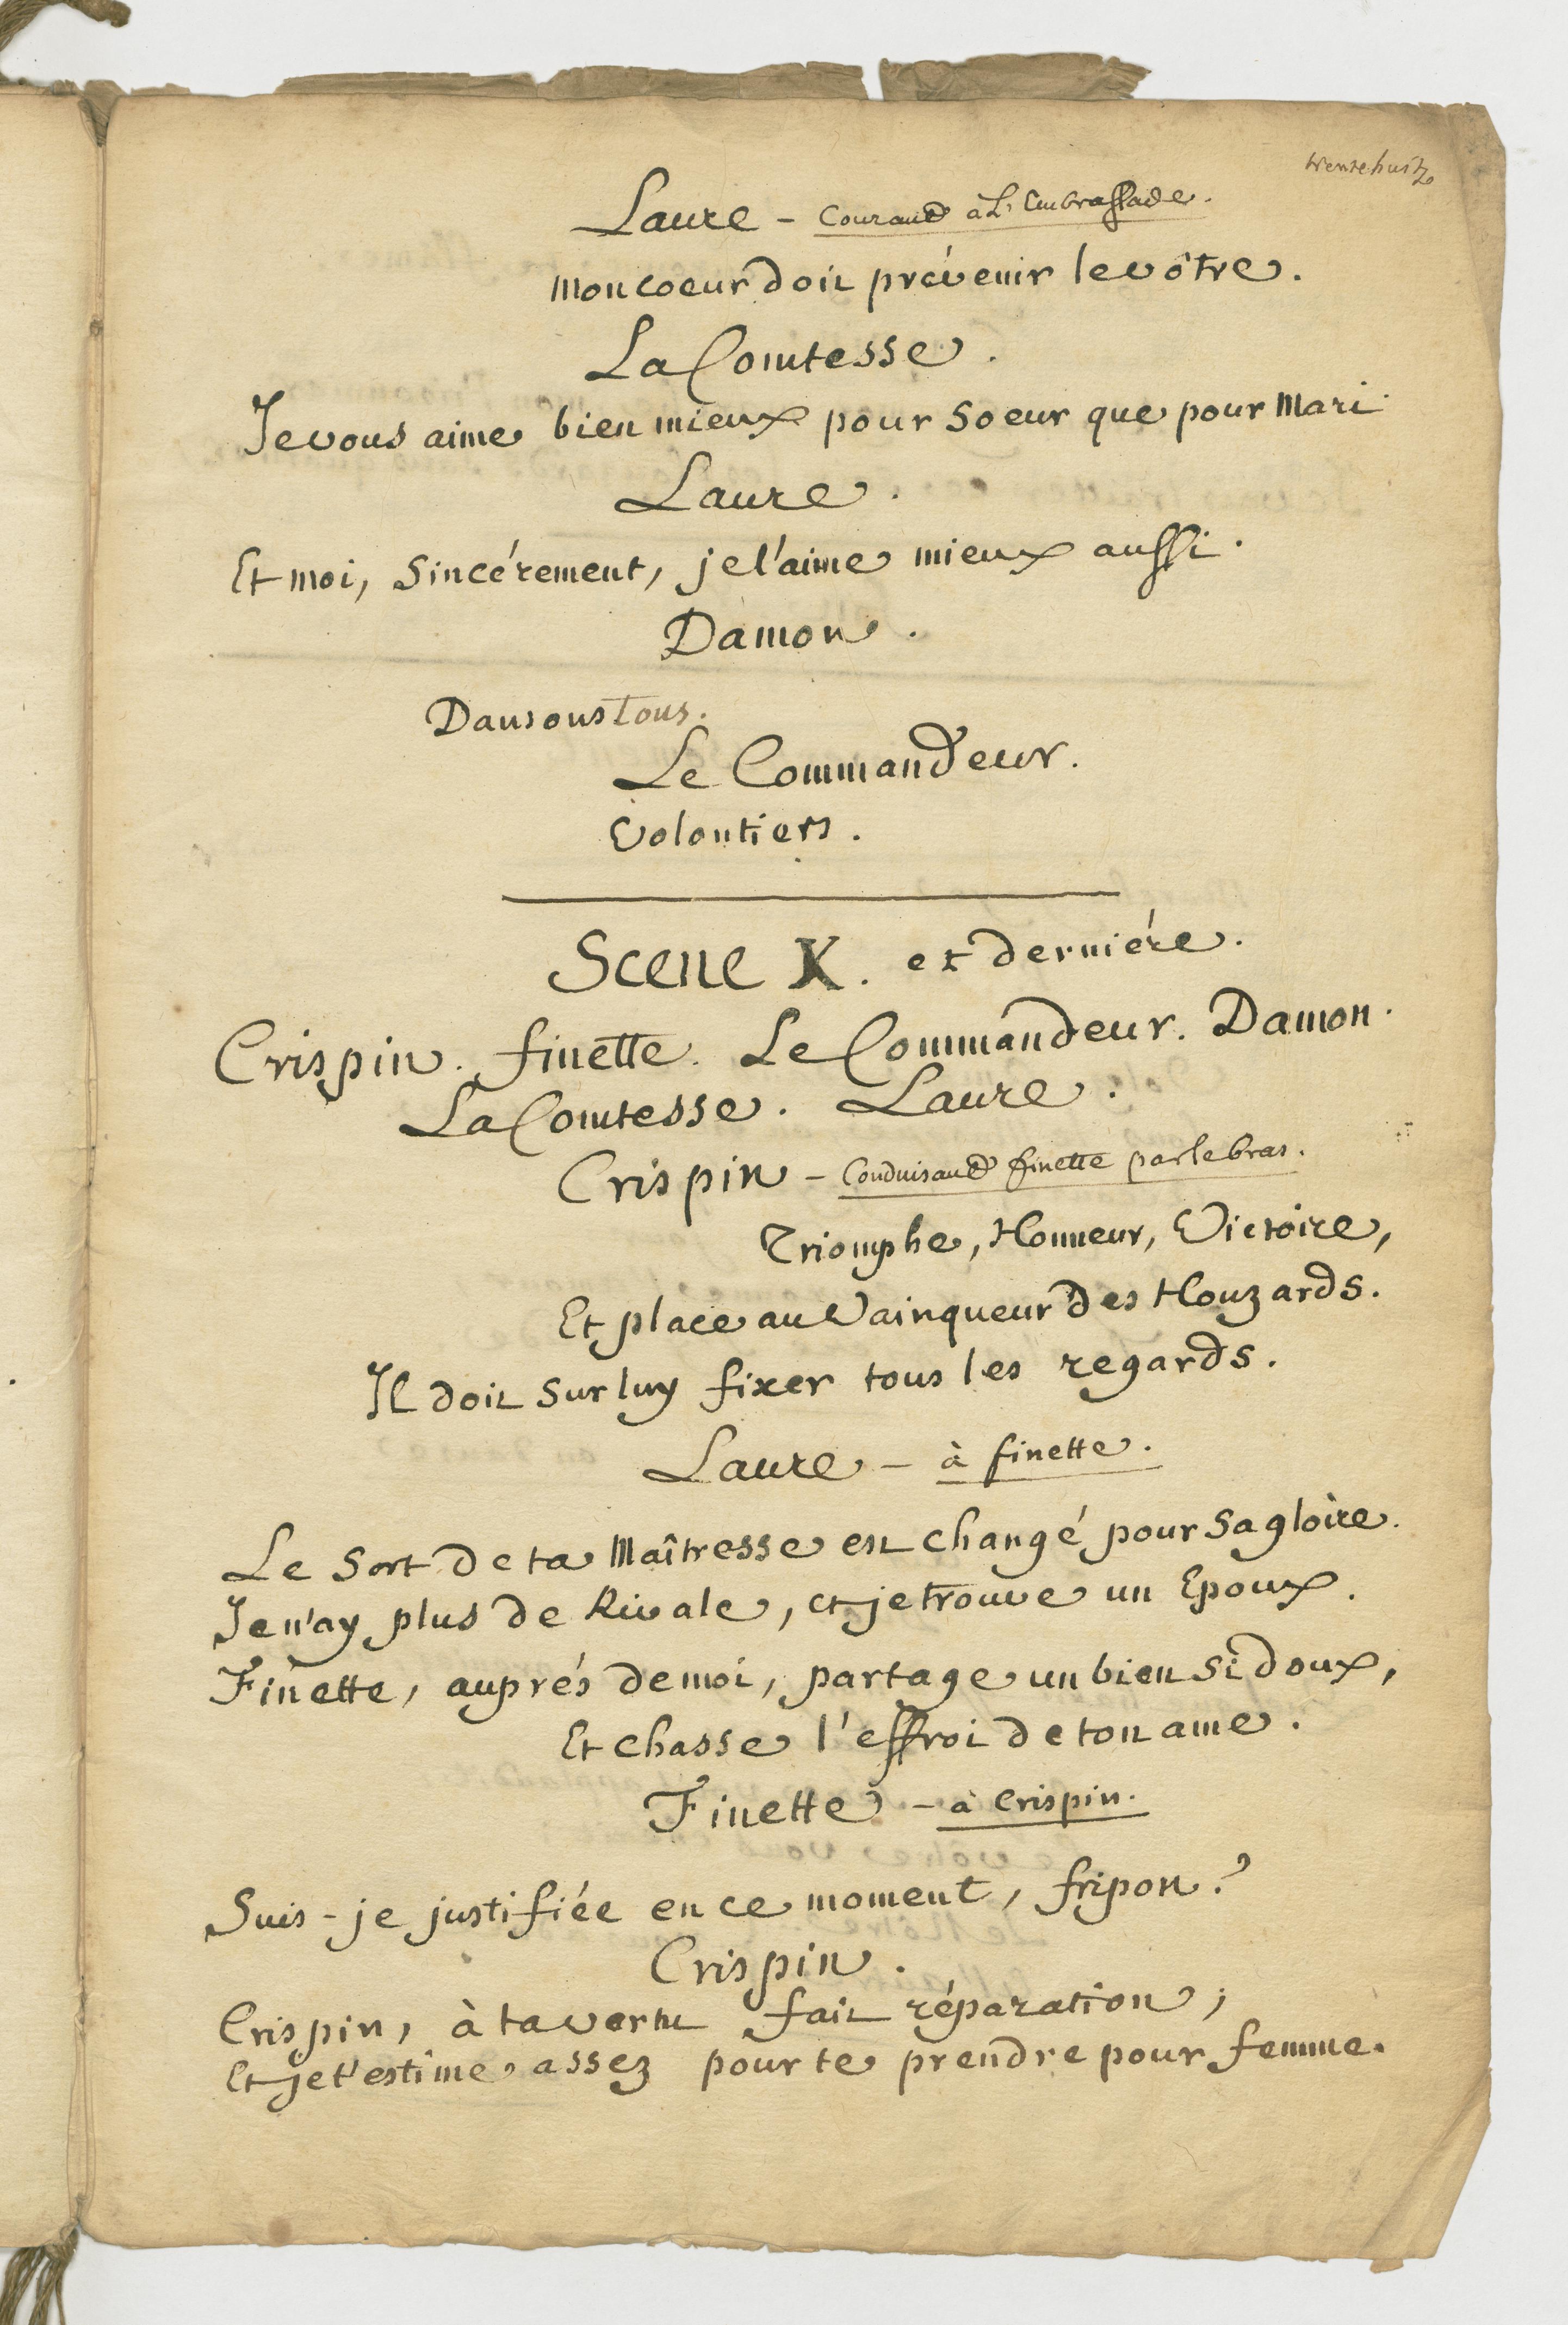 trentehuit
Laure - Courant à L'Embrassade.
Mon coeur doit prévenir le vôtre.
La Comtesse.
Je vous aime bien mieux pour Soeur que pour Mari.
Laure.
Et moi, Sincérement, je l'aime mieux aussi.
Damon.
Dansons Tous.
Le Commandeur.
Volontiers.
Scene X. et derniére.
Crispin. finette. Le Commandeur. Damon.
La Comtesse. Laure.
Crispin - Conduisant finette par le bras.
Triomphe, Honneur, Victoire,
Et place au Vainqueur des Houzards.
Il doit Sur luy fixer tous les regards.
Laure - à finette.
Le Sort de ta Maîtresse est changé pour Sa gloire.
Je n'ay plus de Rivale, et je trouve un Epoux.
Finette, auprés de moi, partage un bien Si doux,
Et chasse l'effroi de ton ame.
Finette - à Crispin.
Suis-je justifiée en ce moment, fripon?
Crispin.
Crispin, à ta vertu fait réparation;
Et je t'estime assez pour te prendre pour femme.